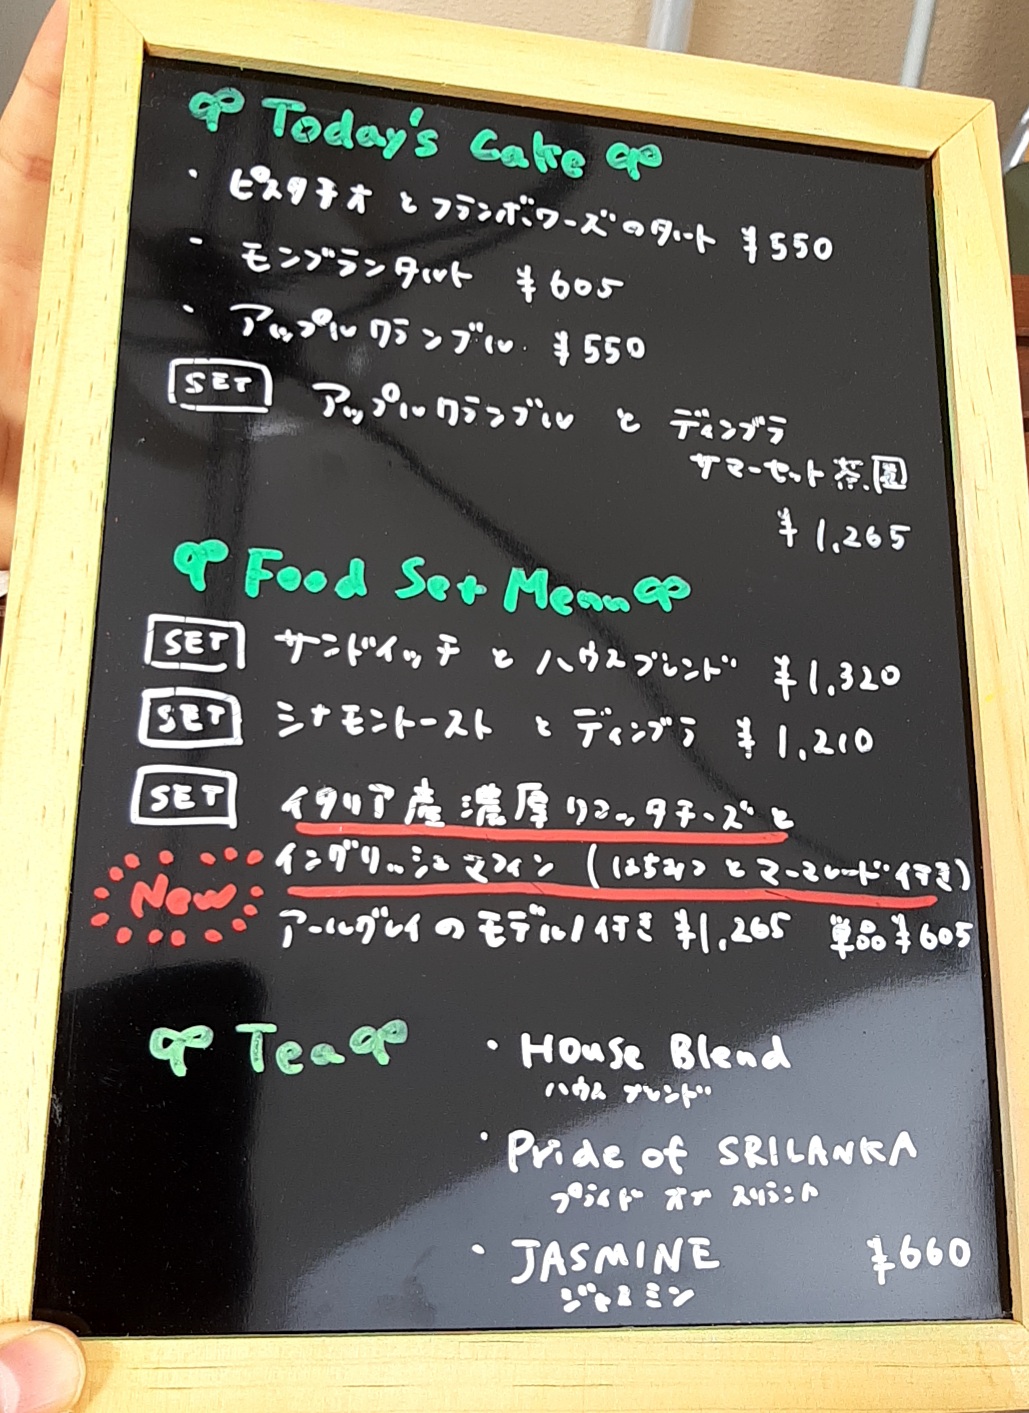 Today's Cake
・ピスタチオとフランボワーズのタルト ¥550
・モンブランタルト ¥605
・アップルクランブル ¥550
SET アップルクランブル と ディンブラ
サマーセット茶園
¥1,265
Food Set Menu
SET サンドイッチ と ハウスブレンド ¥1,320
SET シナモントースト と ディンブラ ¥1,210
SET イタリア産濃厚リコッタチーズと
New イングリッシュマフィン (はちみつとマーマレード付き)
アールグレイのモデルノ付き ¥1,265 単品¥605
Tea ・House Blend
ハウス ブレンド
・Pride of SRILANKA
プライド オブ スリランカ
・JASMINE ¥660
ジャスミン